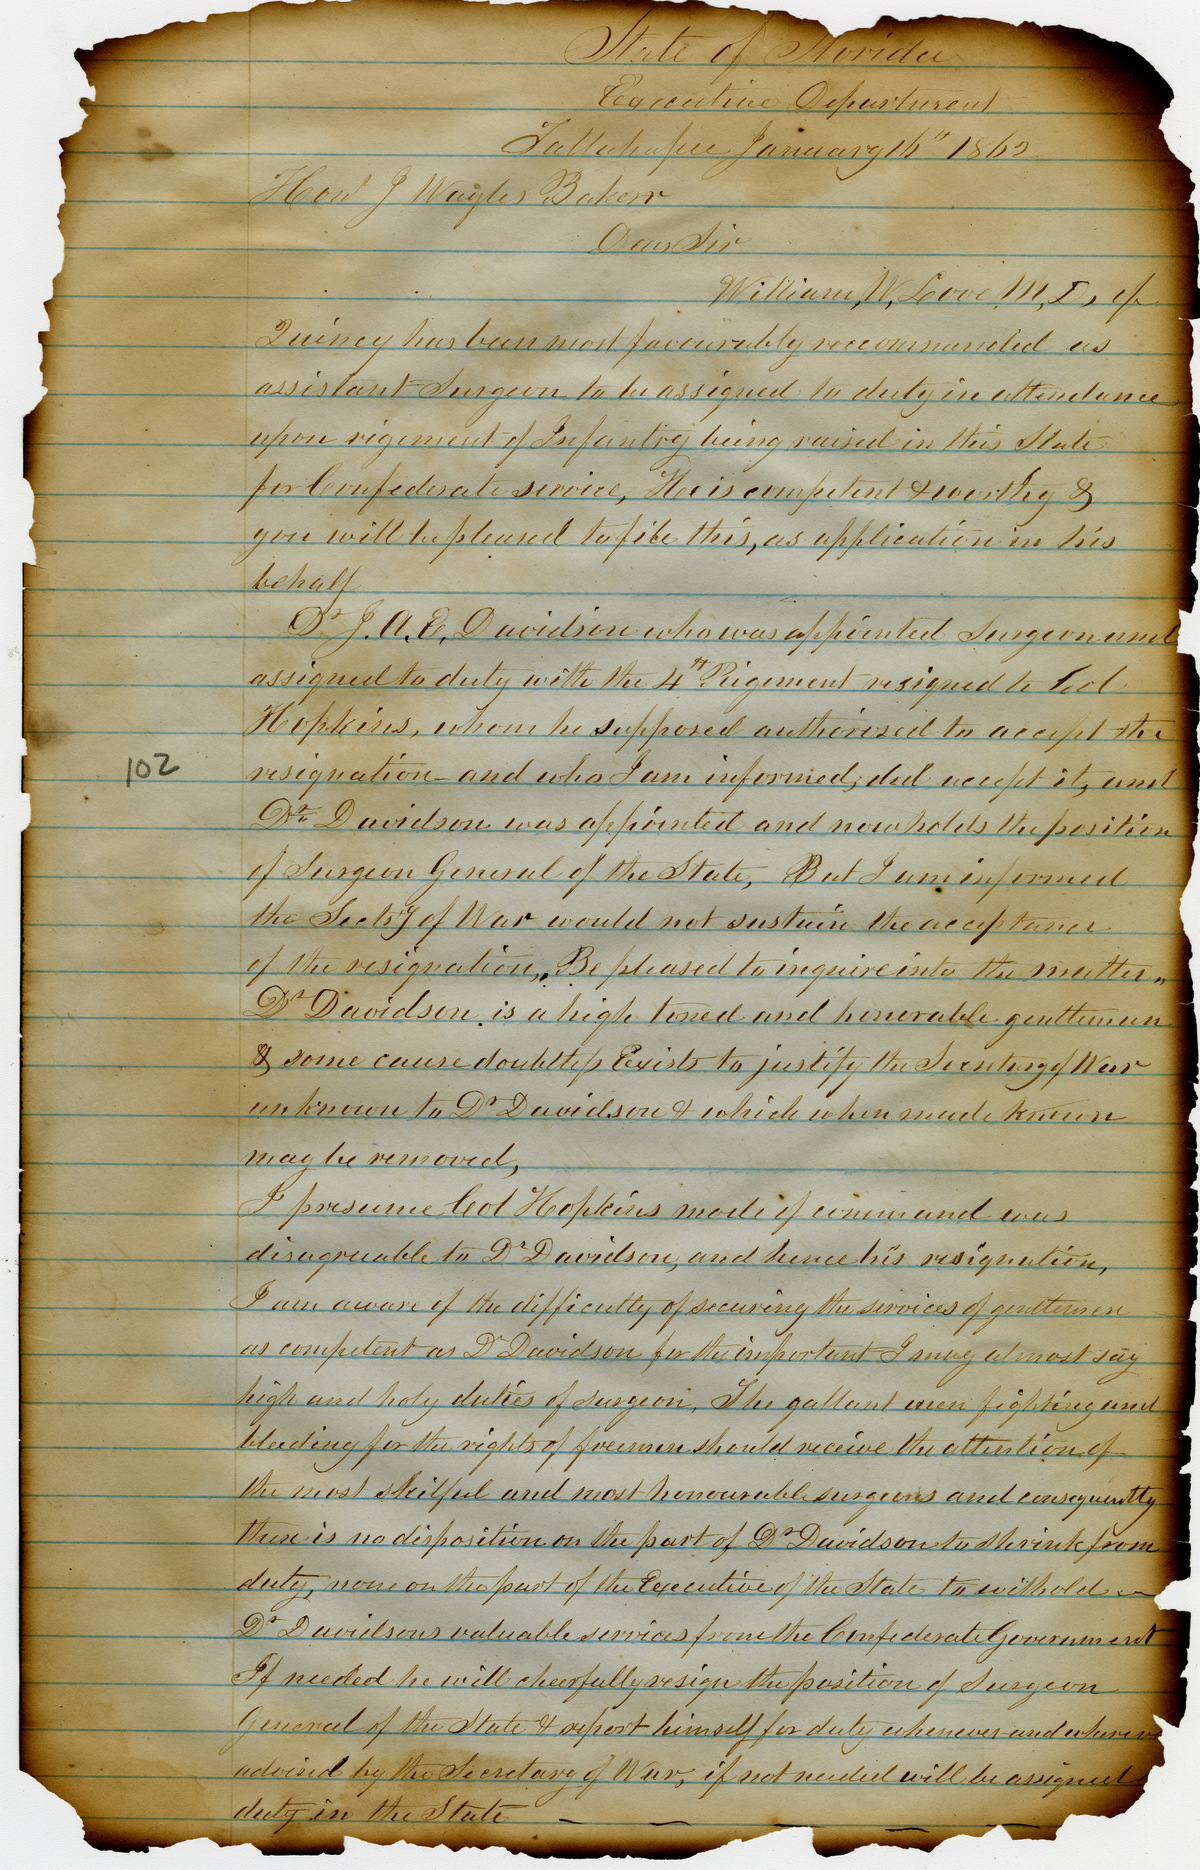 State of Florida
Executive Department
Tallahassee January 16" 1862
Hon^l J Wayles Baker
Dear Sir
William, W, Love M, D, of
Quincy has been most favourably reccommended as
assistant Surgeon to be assigned to duty in attendance
upon rigement of Infantry being raised in this State
for Confederate service, He is competent & worthy &
you will be pleased to file this, as application in his
behalf
Dr J. A. E, Davidson who was appointed Surgeon and
assigned to duty with the 4th Rigement resigned to Col
Hopkins, whom he supposed authorised to accept the
102
resignation and who I am informed, did accept it, and
Dr Davidson was appointed and now holds the position
of Surgeon General of the State, But I am informed
the Sectry of War would not sustain the acceptance
of the resignation,, Be pleased to inquire into the matter,,
Dr Davidson. is a high toned and honorable gentleman
& some cause doubtless Exists to justify the Secretary of War
unknown to Dr Davidson & which when made known
may be removed,
I presume Col Hopkins mode of command was
disagreeable to Dr Davidson, and hence his resignation,
I am aware of the difficulty of securing the services of gentlemen
as competent as Dr Davidson for the important I may almost say
high and holy duties of surgeon, The gallant men fighting and
bleeding for the rights of freemen should receive the attention of
the most skilful and most honourable surgeons and consequently
there is no disposition on the part of Dr Davidson to shrink from
duty, none on the part of the Executive of the State to withold
Dr Davidsons valuable services from the Confederate Government
If needed he will cheerfully resign the position of Surgeon
General of the State & report himself for duty whenever and wherever
advised by the Secretary of War, if not needed will be assigned
duty in the State